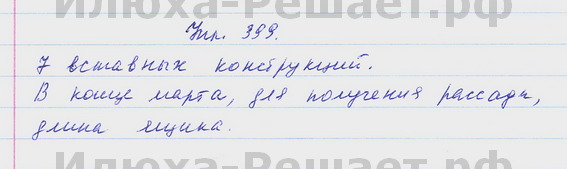 Илюха-Решает.рф
Упр. 399.
7 вставных конструкций.
В конце марта, для получения рассады,
длина ящика.
Илюха-Решает.рф